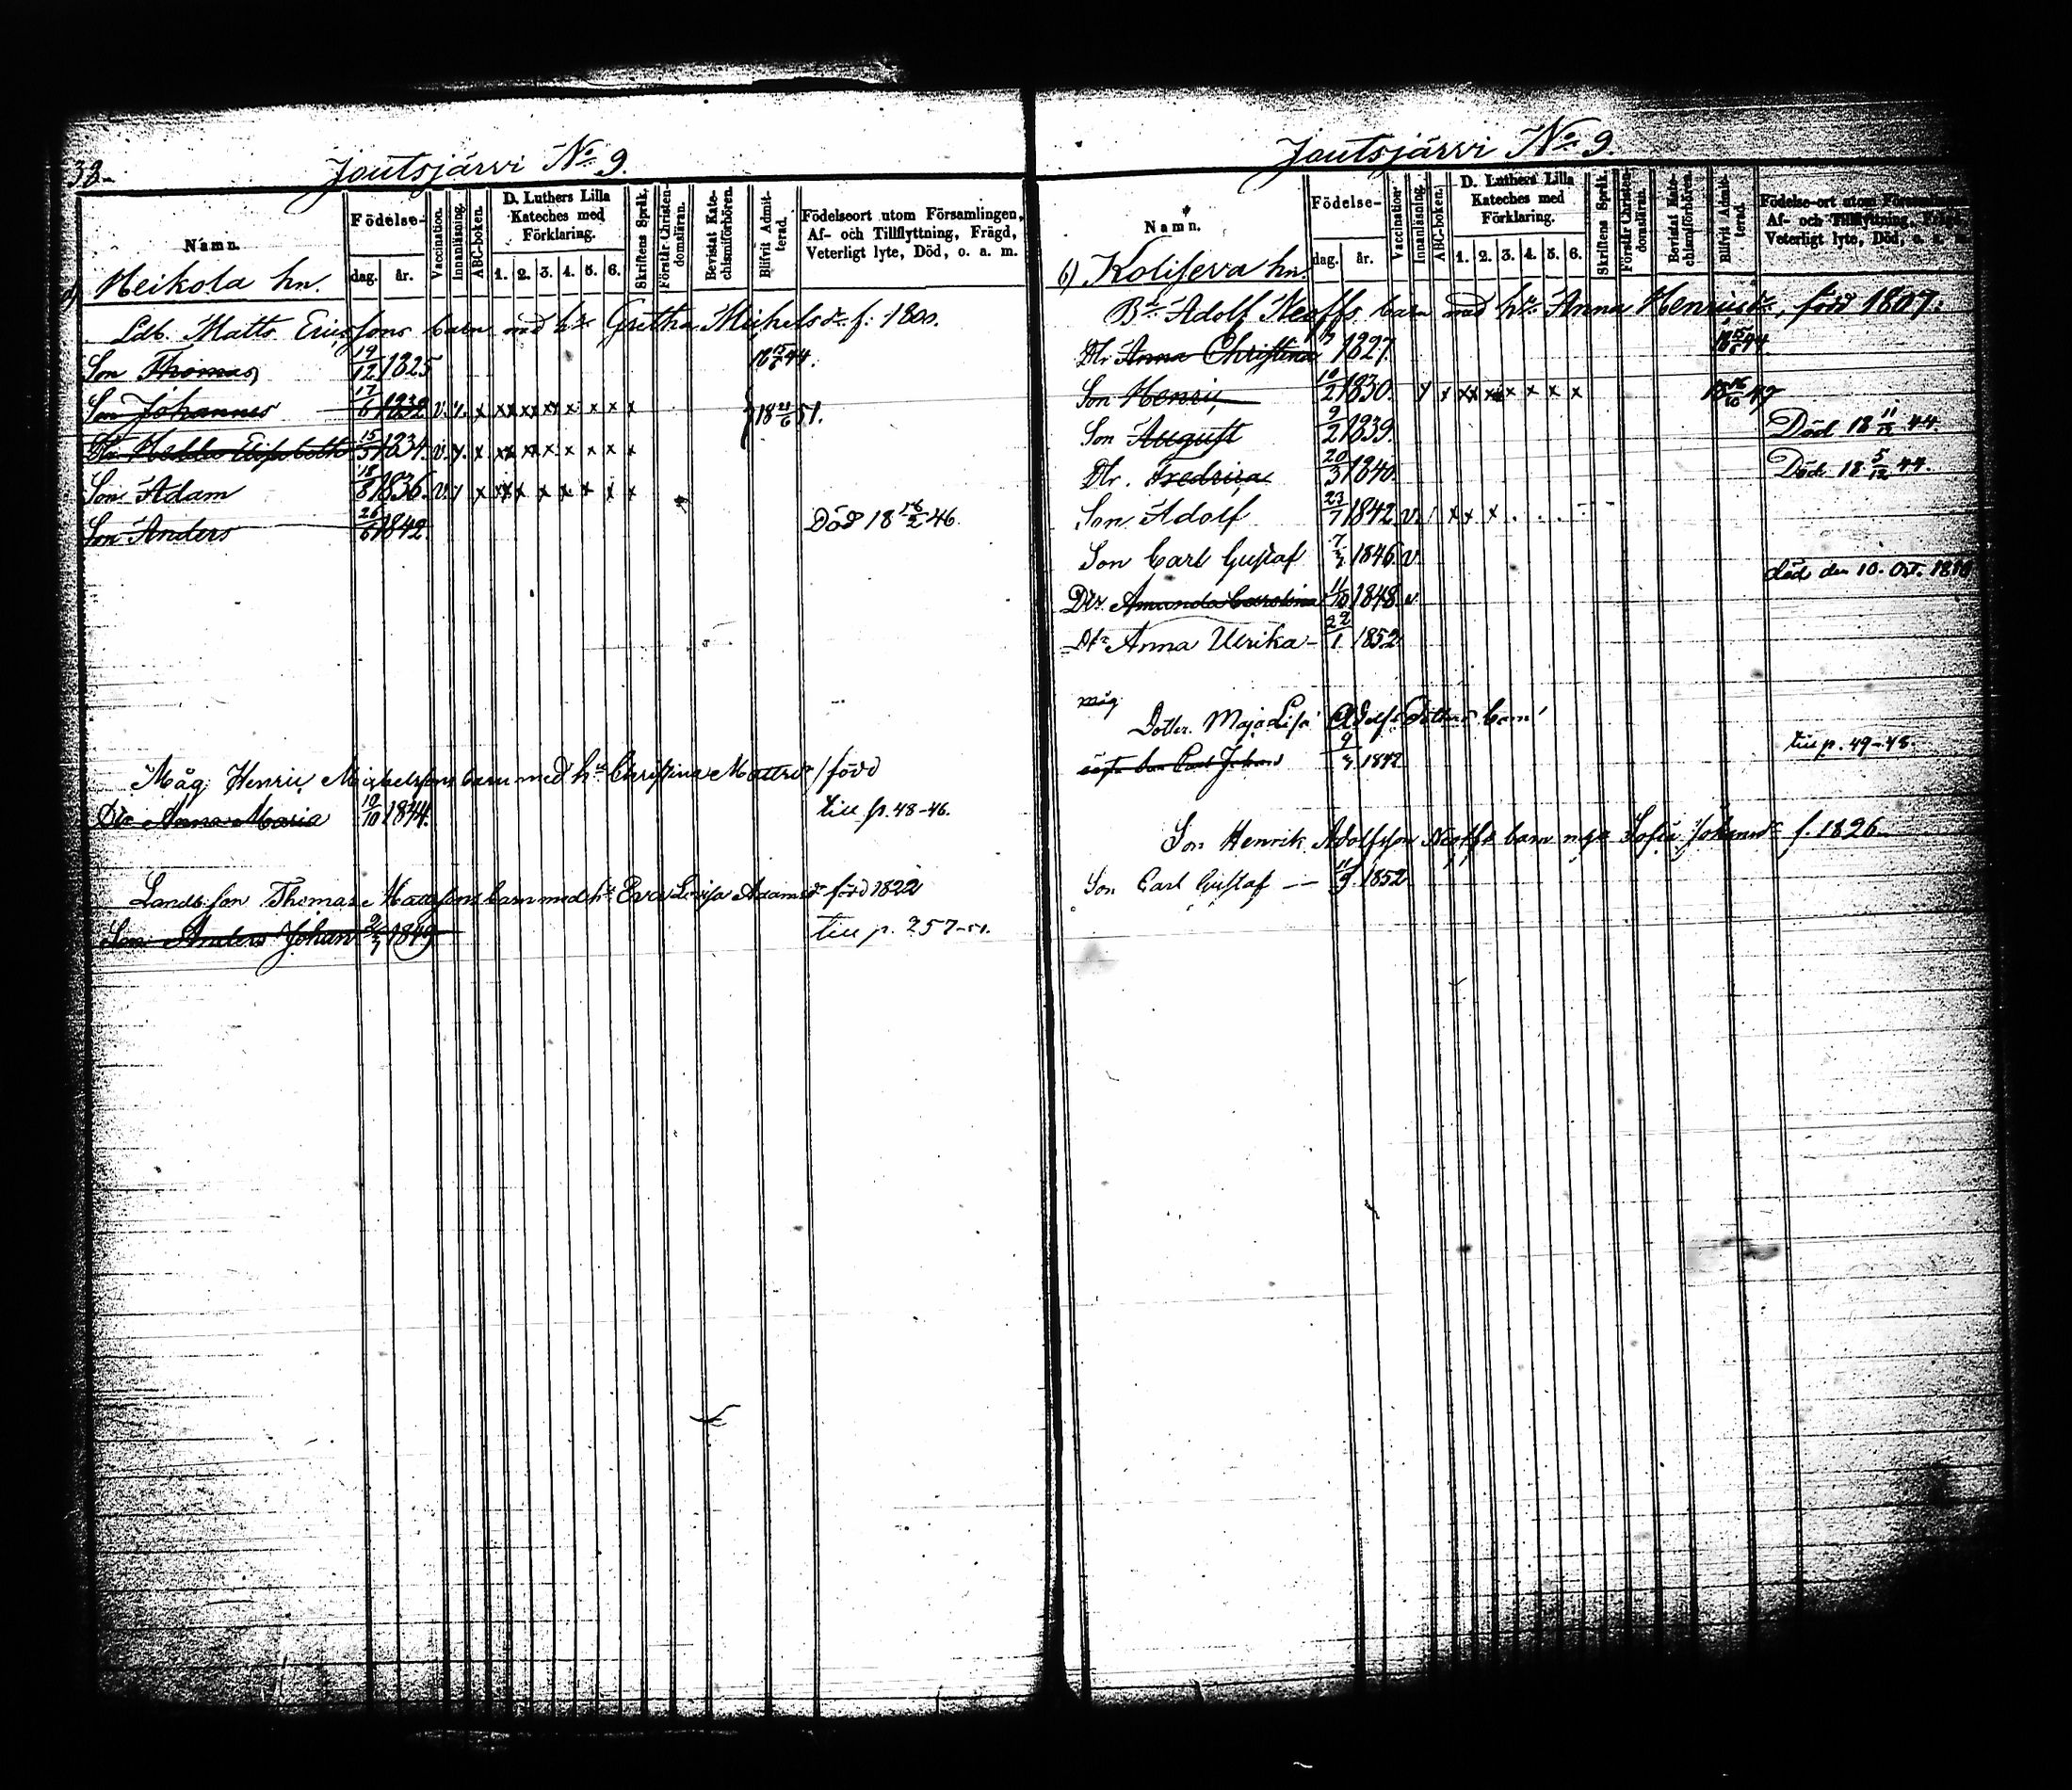 38.
Joutsjärvi No. 9.
Namn.
Födelse-
dag. år.
Vaccination.
Innanläsning.
ABC-boken.
D. Luthers Lilla Kateches med Förklaring.
1. 2. 3. 4. 5. 6.
Skriftens Språk.
Förstår Christendomsläran.
Bevistat Katechismiförhören.
Blifvit Admitterad.
Födelseort utom Församlingen, Af- och Tillflyttning, Frägd, Veterligt lyte, Död, o. a. m.
Heikola hn.
Ldb. Matts Ericssons barn med h. Gretha Michelsdr f. 1800.
Son Thomas 19/12 1825 18 44.
Son Johannes 17/6 1832 v. x x x x x x x x
} 18 21/6 51.
Dr. Hedda Elisabeth 15/5 1834. v. x x x x x x x x
Son Adam 18/8 1836. v. x x x x x x x x
Son Anders 26/6 1842 Död 18 /2 46.
Måg Henric Michelssons barn med h. Christina Mattsdr / född
Dr Anna Maria 19/10 1844. till p. 48-46.
Landb. son Thomas Mattssons barn med h. Eva Lovisa Adamsdr född 1822
Son Anders Johan 1849 till p. 257-51.
Joutsjärvi No. 9.
Namn.
Födelse-
dag. år.
Vaccination
Innanläsning.
ABC-boken.
D. Luthers Lilla Kateches med Förklaring.
1. 2. 3. 4. 5. 6.
Skriftens Språk.
Förstår Christendomsläran.
Bevistat Katechismiförhören.
Blifvit Admitterad.
Födelse-ort utom Församlingen, Af- och Tillflyttning, Frägd, Veterligt lyte, Död, o. a. m.
6) Koliseva hn.
Bd. Adolf Neoffs barn med h. Anna Henricsdr, född 1807.
Dr Anna Christina 1827. 18 44.
Son Henric 10/2 1830. x x x x x x x 18 49
Son August 9/2 1839. Död 18 11/12 44.
Dr. Fredrica 20/3 1840. Död 18 5/12 44.
Son Adolf 23/7 1842 v. x x x . . .
Son Carl Gustaf 1846. v.
död den 10. Oct.
Dr Amanda Carolina 11/10 1848 v
Dr Anna Ulrika - 22/1 1852
måg
Dotter. Maja Lisa Adolfs Dotters barn
Carl Johan 1842 till p. 49-48
Son Henrik Adolfsson Neoffs barn m. Sofia Johansdr f. 1826
Son Carl Gustaf — 11/9 1852